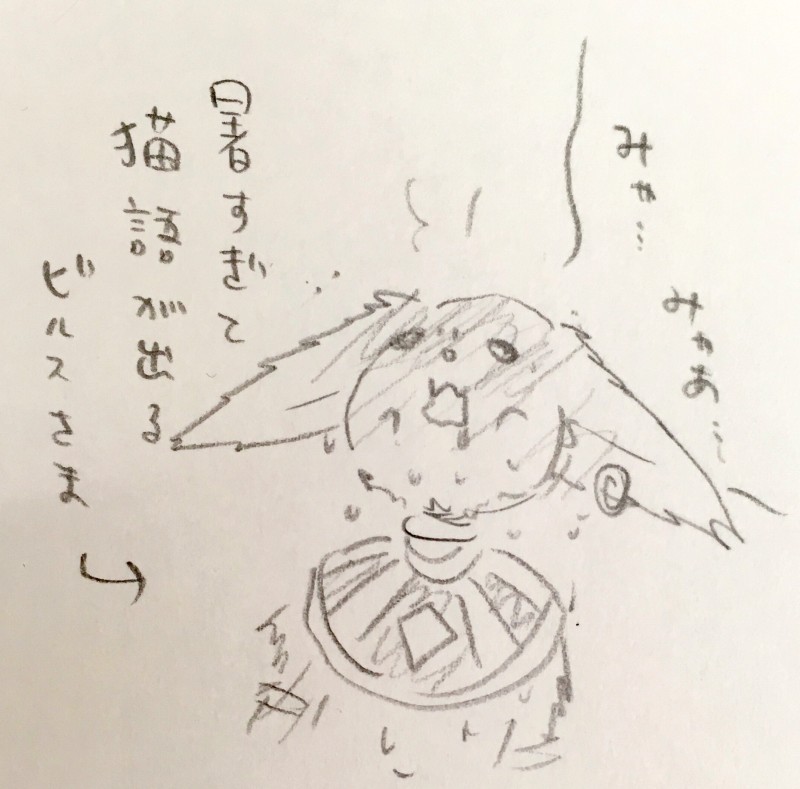 みゃ…
みゃあ…
暑すぎて
猫語が出る
ビルスさま